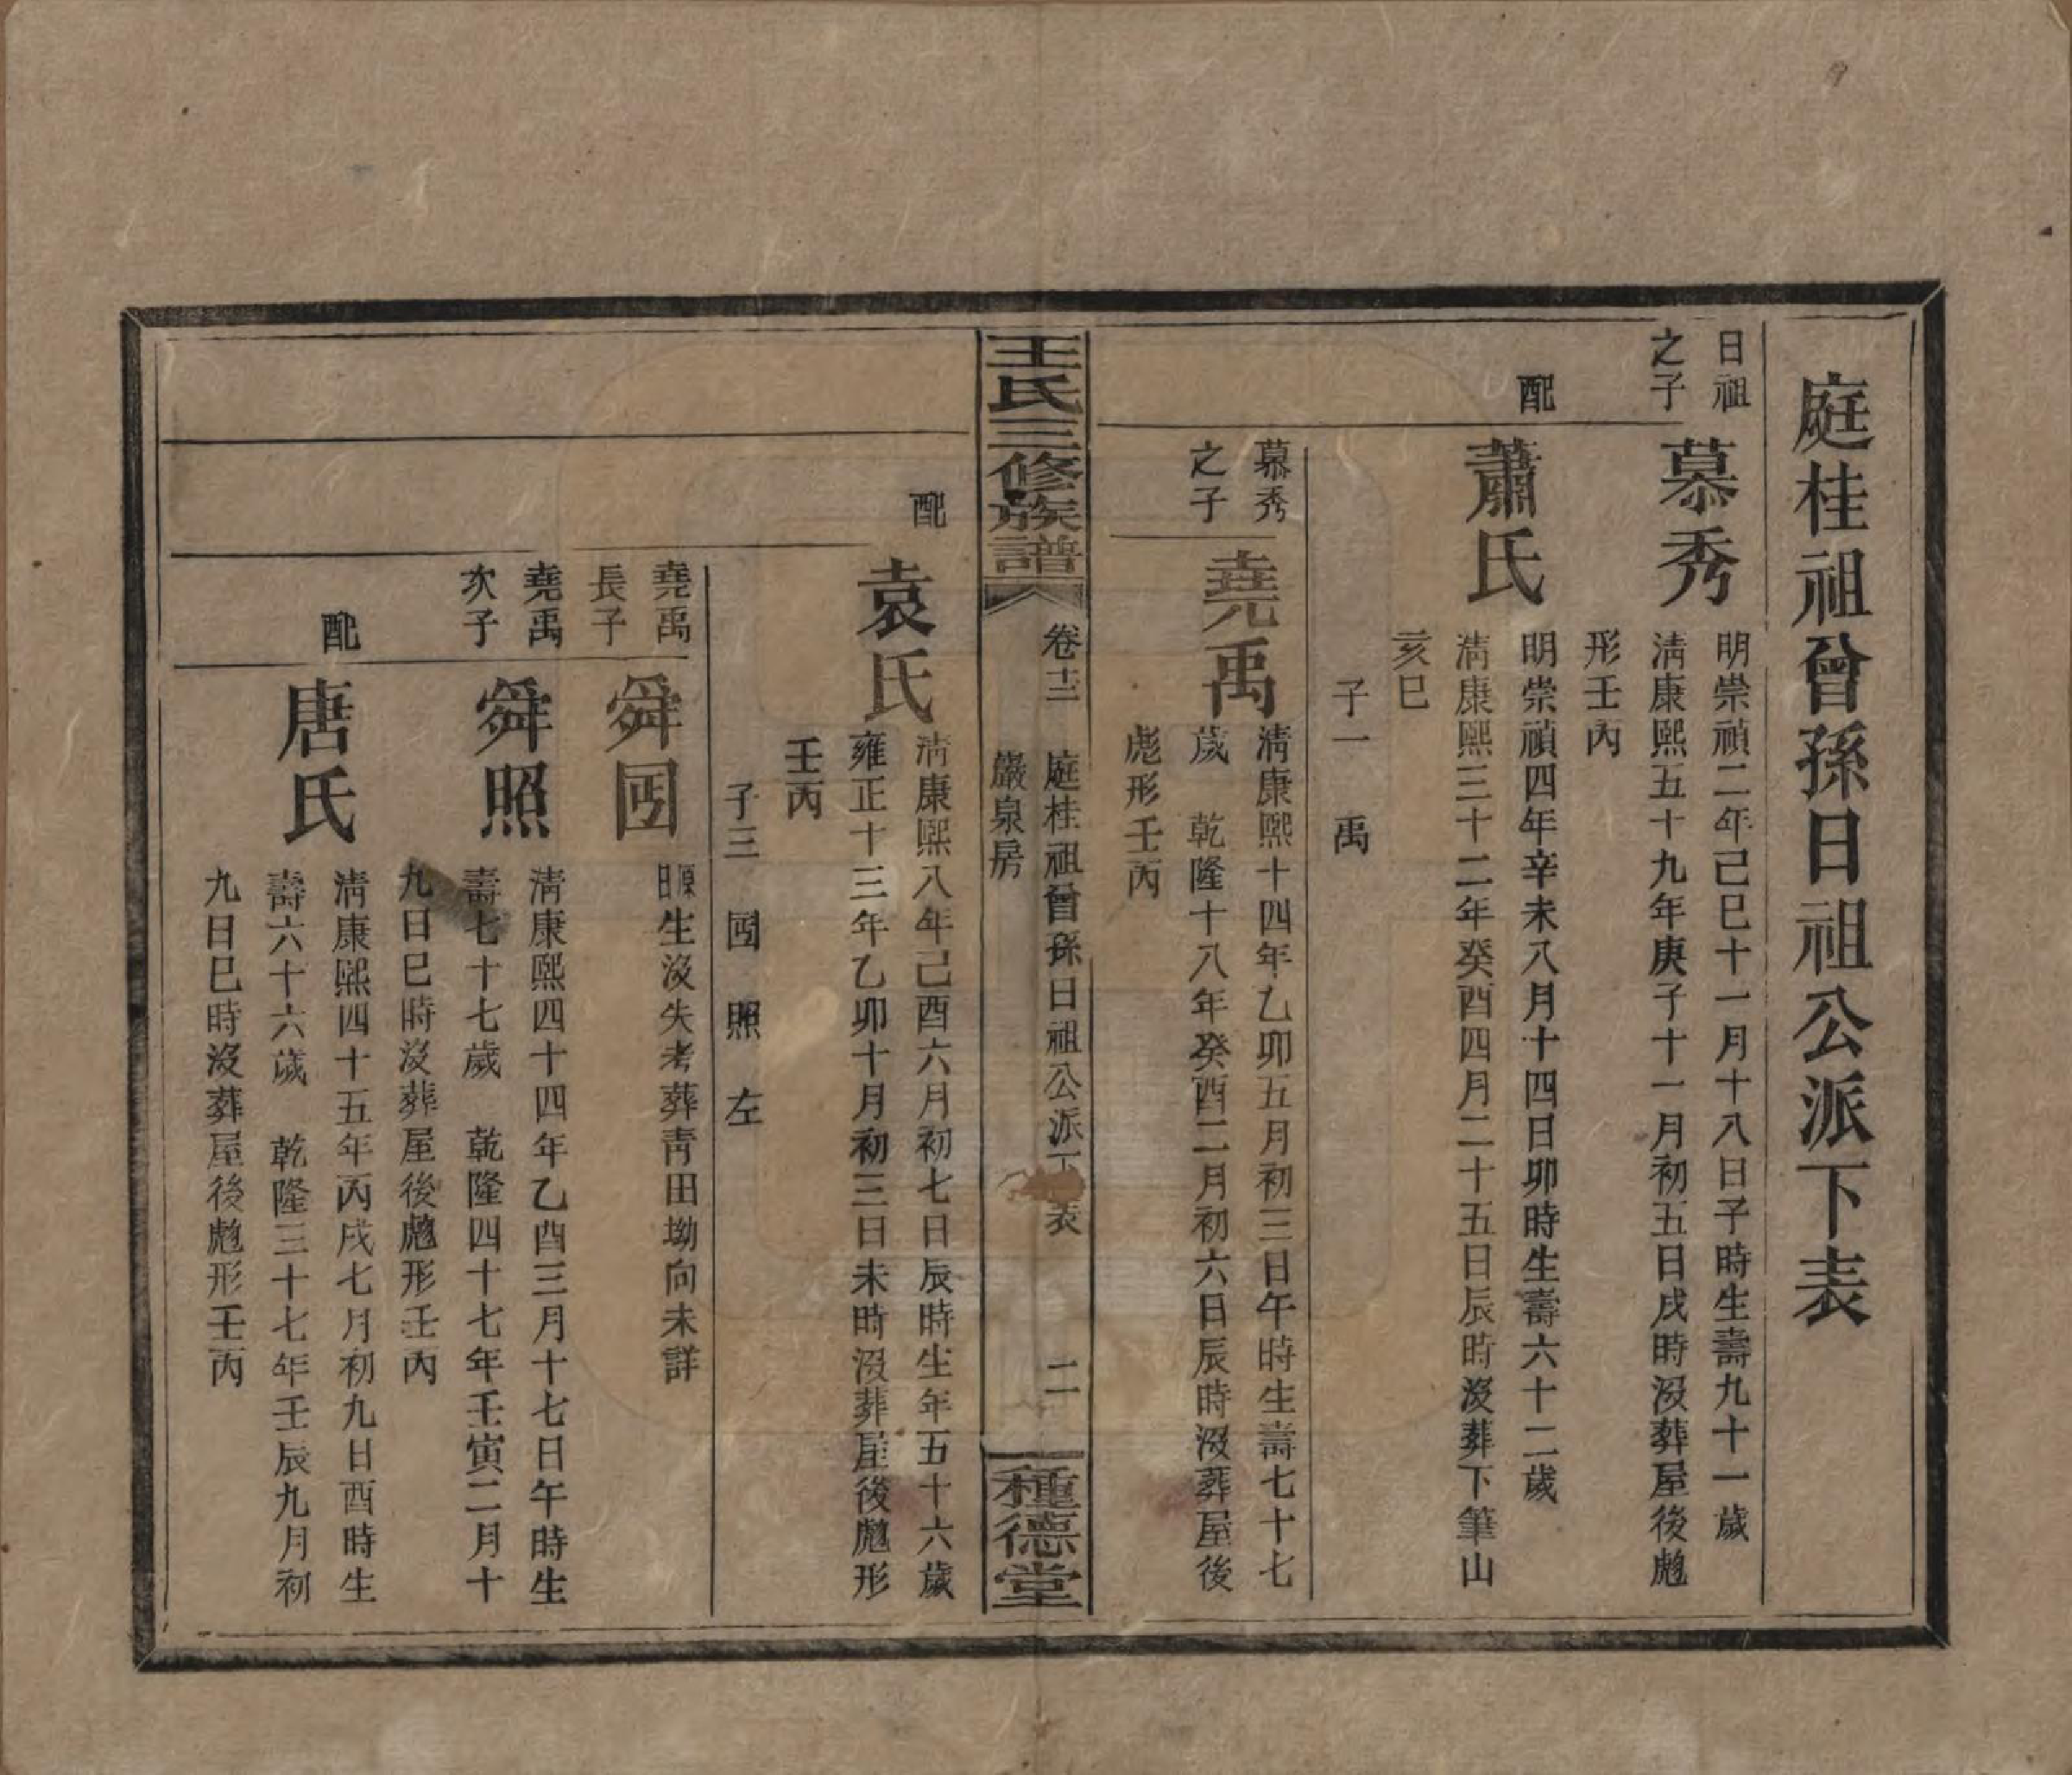 庭桂祖曾孫日祖公派下表
日祖
之子
慕秀
明崇禎二年己巳十一月十八日子時生壽九十一歲
淸康熙五十九年庚子十一月初五日戌時沒葬屋後彪
形壬丙
配
蕭氏
明崇禎四年辛未八月十四日卯時生壽六十二歲
淸康熙三十二年癸酉四月二十五日辰時沒葬下筆山
亥巳
子一 禹
慕秀
之子
堯禹
淸康熙十四年乙卯五月初三日午時生壽七十七
歲 乾隆十八年癸酉二月初六日辰時沒葬屋後
彪形壬丙
王氏三修族譜
卷十三 庭桂祖曾孫日祖公派下表 二
巖泉房
種德堂
配
袁氏
淸康熙八年己酉六月初七日辰時生年五十六歲
雍正十三年乙卯十月初三日未時沒葬屋後彪形
壬丙
子三 囻 照 左
堯禹
長子
舜囻
原日生沒失考葬靑田坳向未詳
堯禹
次子
舜照
淸康熙四十四年乙酉三月十七日午時生
壽七十七歲 乾隆四十七年壬寅二月十
九日巳時沒葬屋後彪形壬丙
配
唐氏
淸康熙四十五年丙戌七月初九日酉時生
壽六十六歲 乾隆三十七年壬辰九月初
九日巳時沒葬屋後彪形壬丙